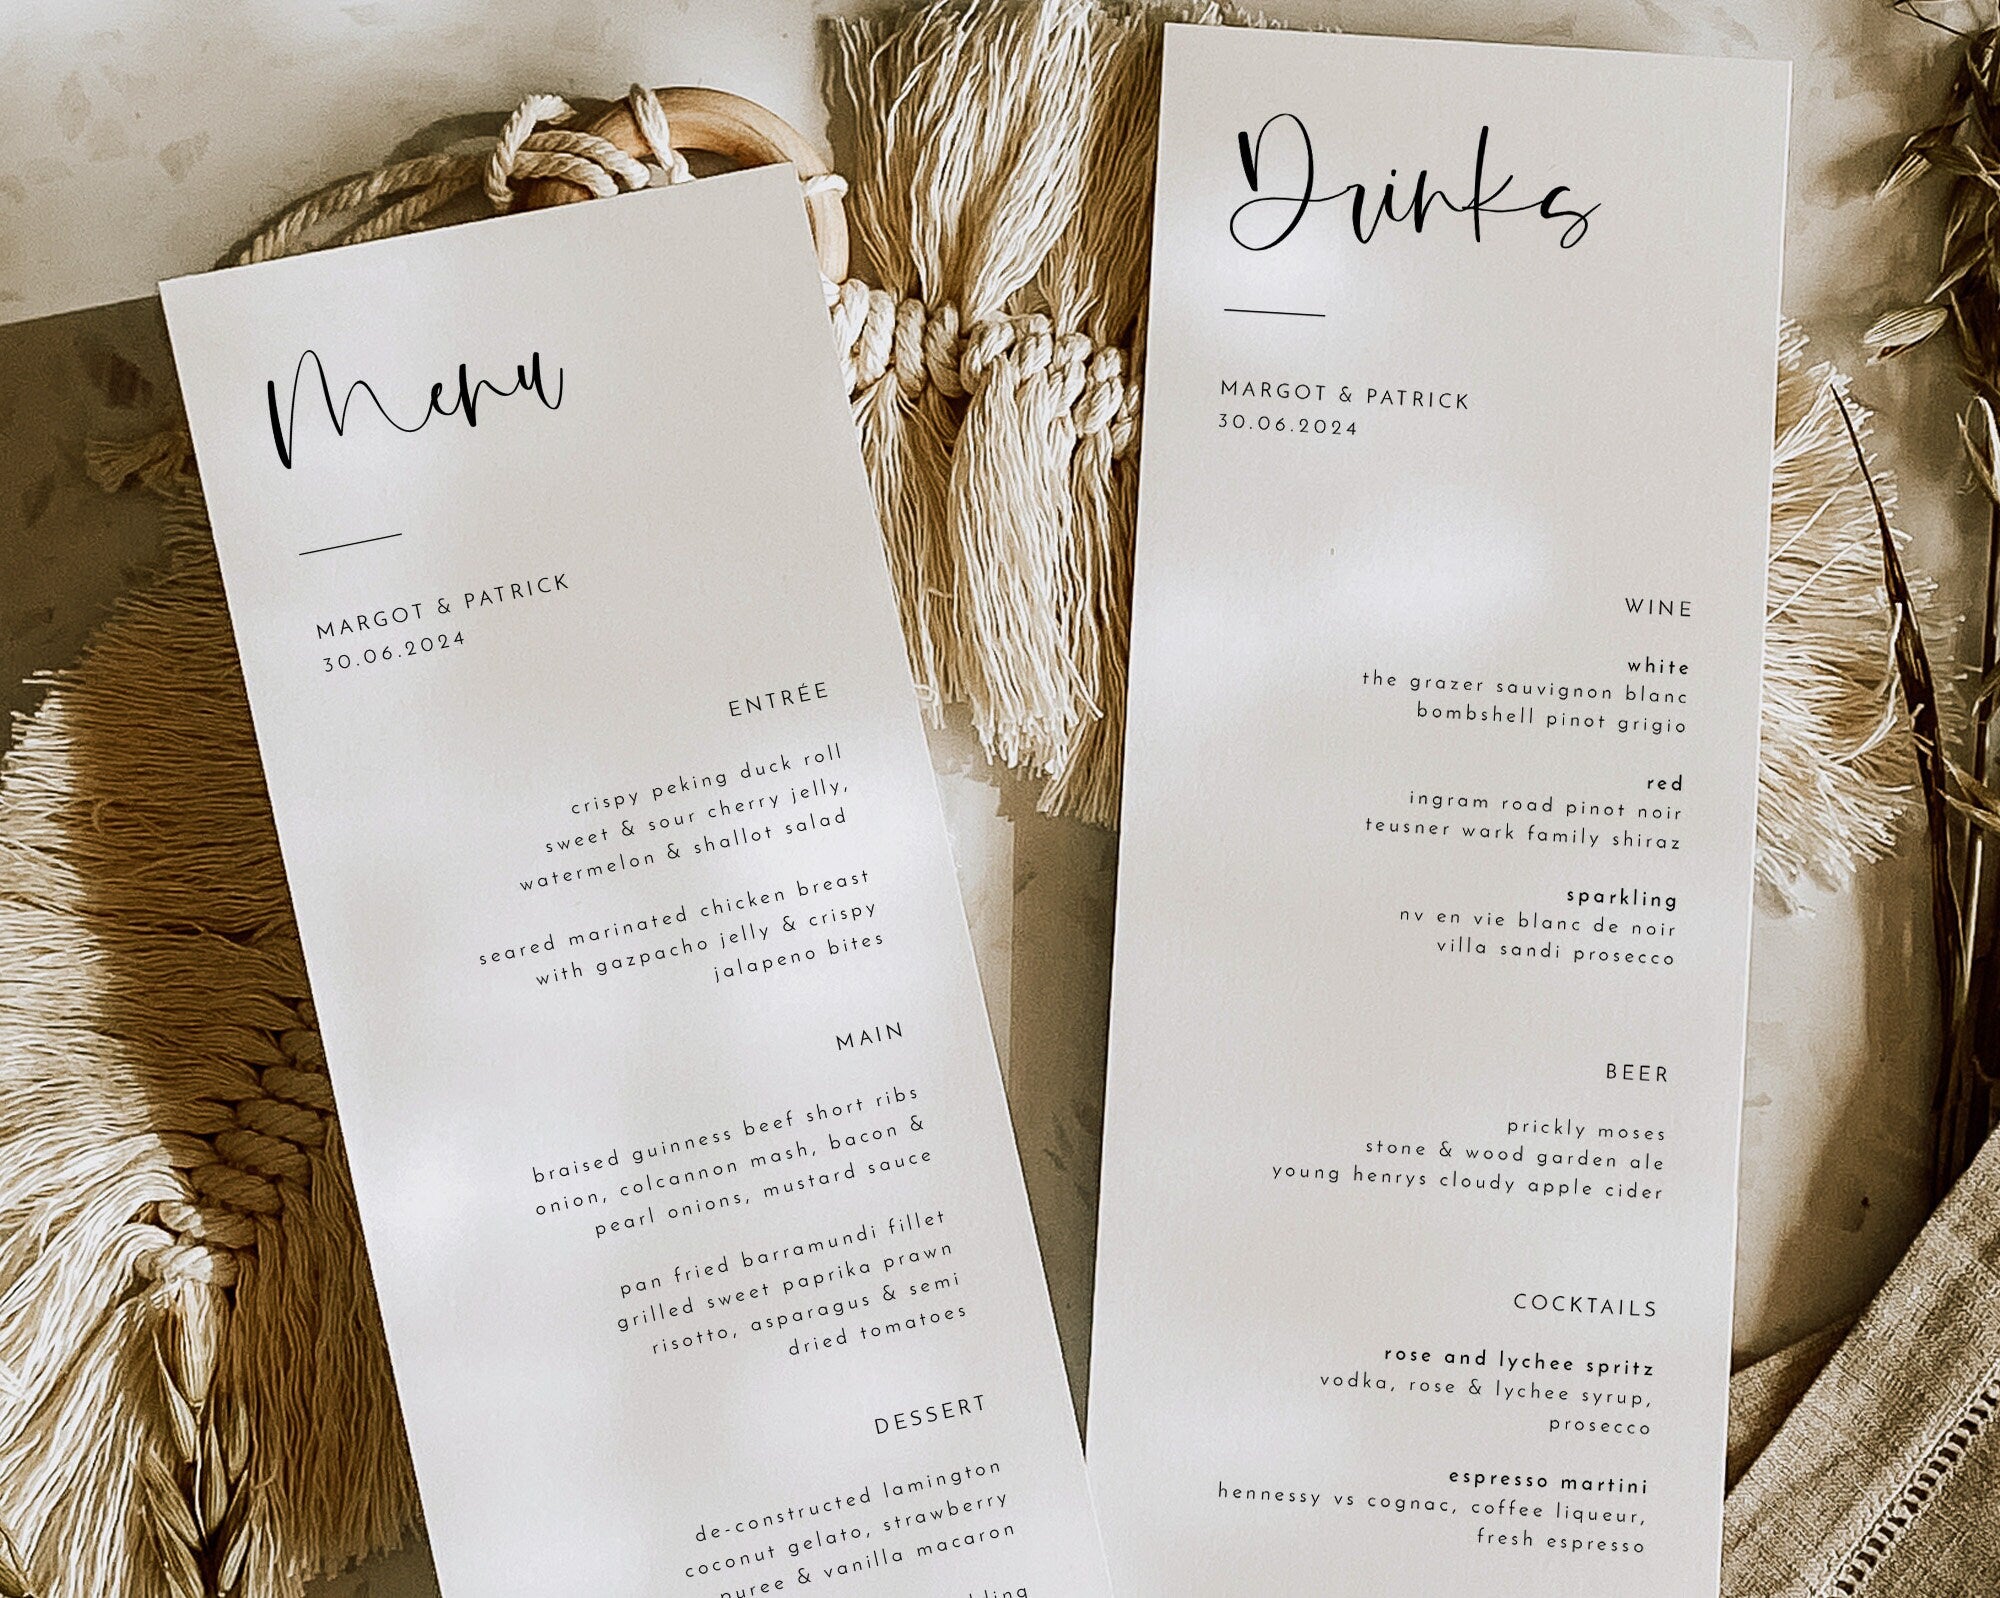 Menu
MARGOT & PATRICK
30.06.2024
ENTRÉE
crispy peking duck roll
sweet & sour cherry jelly,
watermelon & shallot salad
seared marinated chicken breast
with gazpacho jelly & crispy
jalapeno bites
MAIN
braised guinness beef short ribs
onion, colcannon mash, bacon &
pearl onions, mustard sauce
pan fried barramundi fillet
grilled sweet paprika prawn
risotto, asparagus & semi
dried tomatoes
DESSERT
de-constructed lamington
coconut gelato, strawberry
puree & vanilla macaron
Drinks
MARGOT & PATRICK
30.06.2024
WINE
white
the grazer sauvignon blanc
bombshell pinot grigio
red
ingram road pinot noir
teusner wark family shiraz
sparkling
nv en vie blanc de noir
villa sandi prosecco
BEER
prickly moses
stone & wood garden ale
young henrys cloudy apple cider
COCKTAILS
rose and lychee spritz
vodka, rose & lychee syrup,
prosecco
espresso martini
hennessy vs cognac, coffee liqueur,
fresh espresso